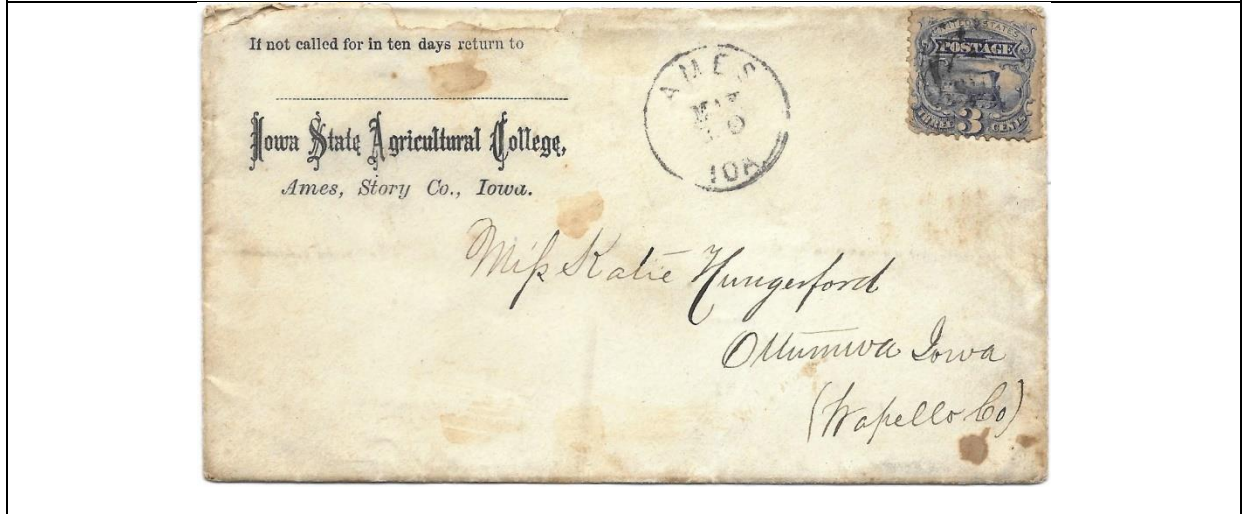 If not called for in ten days return to
Iowa State Agricultural College,
Ames, Story Co., Iowa.
AMES
IOA
UNITED STATES
POSTAGE
THREE 3 CENTS
Miſs Katie Hungerford
Ottumwa Iowa
(Wapello Co)